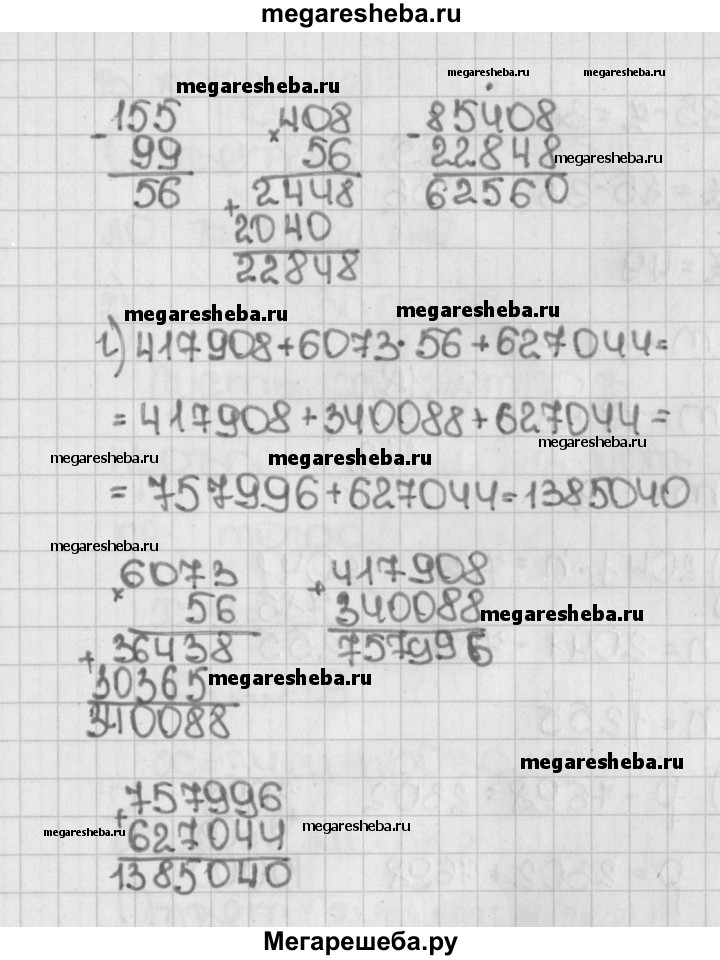 megaresheba.ru
megaresheba.ru
megaresheba.ru megaresheba.ru
155 408 85408
- × -
99 56 22848
megaresheba.ru
56 2448 62560
+
2040
22848
megaresheba.ru megaresheba.ru
г) 417908+6073·56+627044=
= 417908+340088+627044=
megaresheba.ru
megaresheba.ru megaresheba.ru
= 757996+627044=1385040
megaresheba.ru
megaresheba.ru
6073 417908
× +
56 340088
megaresheba.ru
36438 757996
+
30365
megaresheba.ru
340088
megaresheba.ru
757996
+
megaresheba.ru 627044 megaresheba.ru
1385040
Мегарешеба.ру